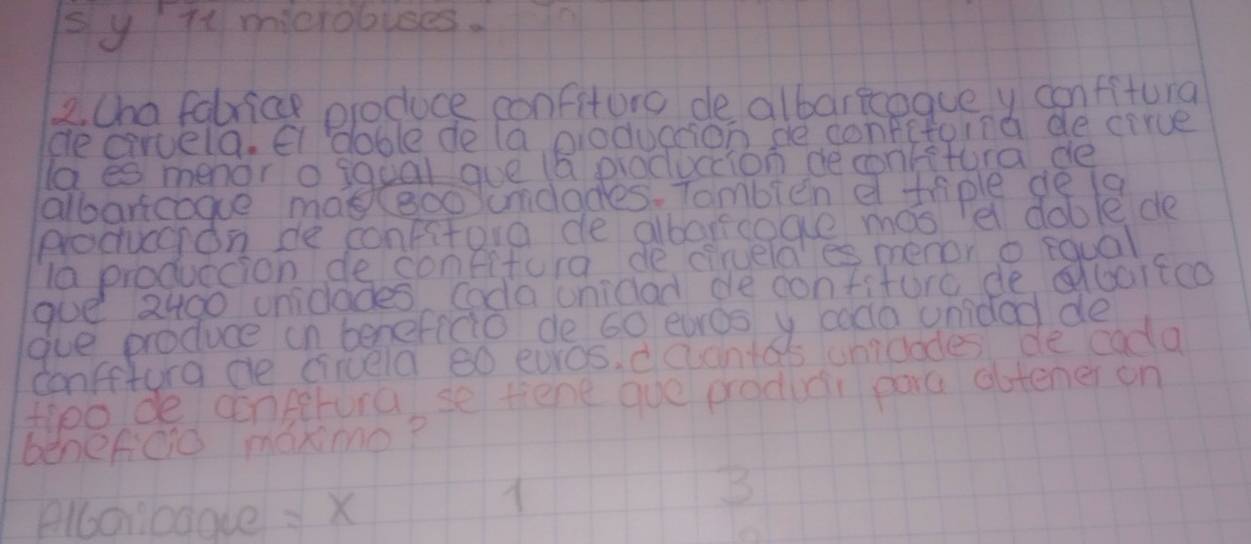 s y 11 microbuses.
2. Una fabrica produce confitura de albaricoque y confitura
de ciruela. El doble de la producción de confitura de cirue
la es menor o igual que la producción de confitura de
albaricoque mas 800 unidades. Tambien el triple de la
producción de confitura de albaricoque mas el doble de
la produccion de confitura de ciruela es menor o igual
que 2400 unidades. Cada unidad de confitura de albarico
que produce un beneficio de 60 euros y cada unidad de
confitura de ciruela 80 euros. ¿Cuantas unidades de cada
tipo de confitura se tiene que producir para obtener un
beneficio máximo?
Albaricoque = x 1 3